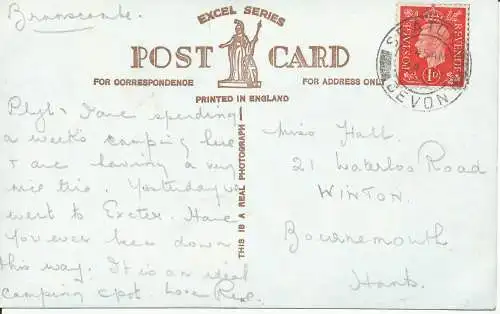 Branscombe.
EXCEL SERIES
POST CARD
FOR CORRESPONDENCE
FOR ADDRESS ONLY
PRINTED IN ENGLAND
I are spending
a week's camping here
+ are having a very
nice time. Yesterday we
went to Exeter. Have
you ever been down
this way. It is an ideal
camping spot. Love
THIS IS A REAL PHOTOGRAPH
Miss Hall.
21 Waterloo Road
WINTON.
Bournemouth.
Hants.
POSTAGE
REVENUE
1D
DEVON